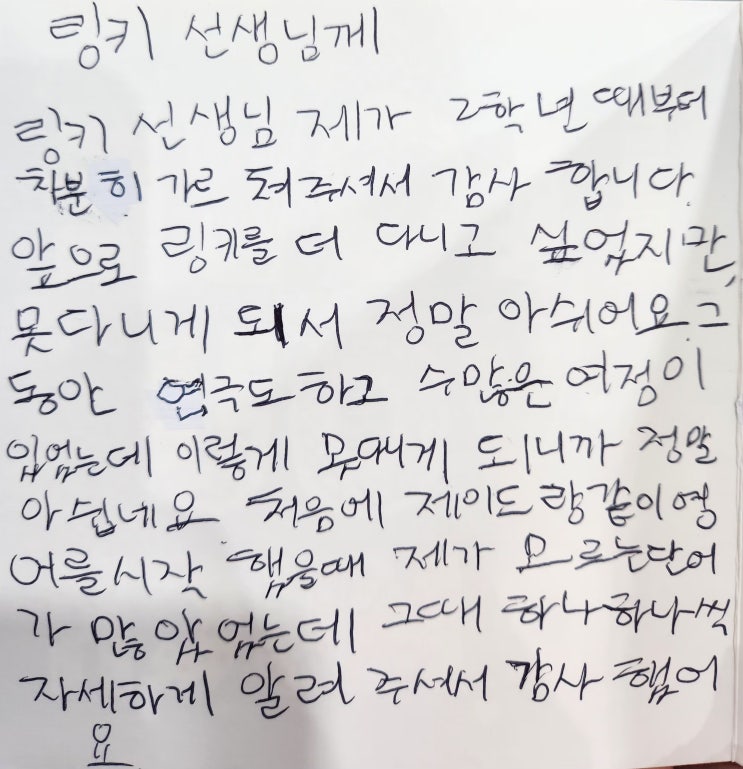 링키 선생님께
링키 선생님 제가 2학년 때부터
차분히 가르 쳐주셔서 감사 합니다.
앞으로 링키를 더 다니고 싶었지만,
못다니게 되서 정말 아쉬어요 그
동안 연극도 하고 수많은 여정이
있었는데 이렇게 못다니게 되니까 정말
아쉽네요 처음에 제이드랑같이 영
어를 시작 했을때 제가 모르는단어
가 많 았었는데 그때 하나하나씩
자세하게 알려 주셔서 감사 했어
요